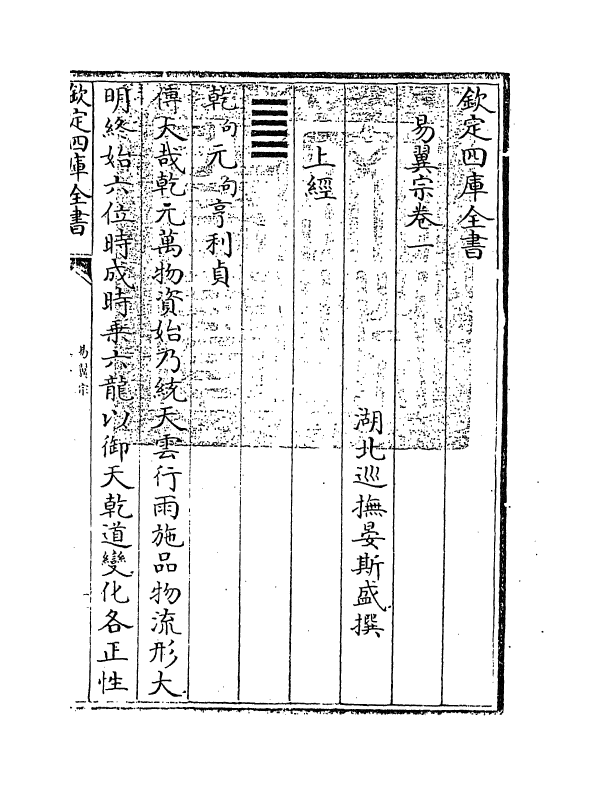 欽定四庫全書
易翼宗卷一
湖北巡撫晏斯盛撰
上經
䷀
乾句元句亨利貞
傳天哉乾元萬物資始乃統天雲行雨施品物流形大
明終始六位時成時乗六龍以御天乾道變化各正性
欽定四庫全書
易翼宗